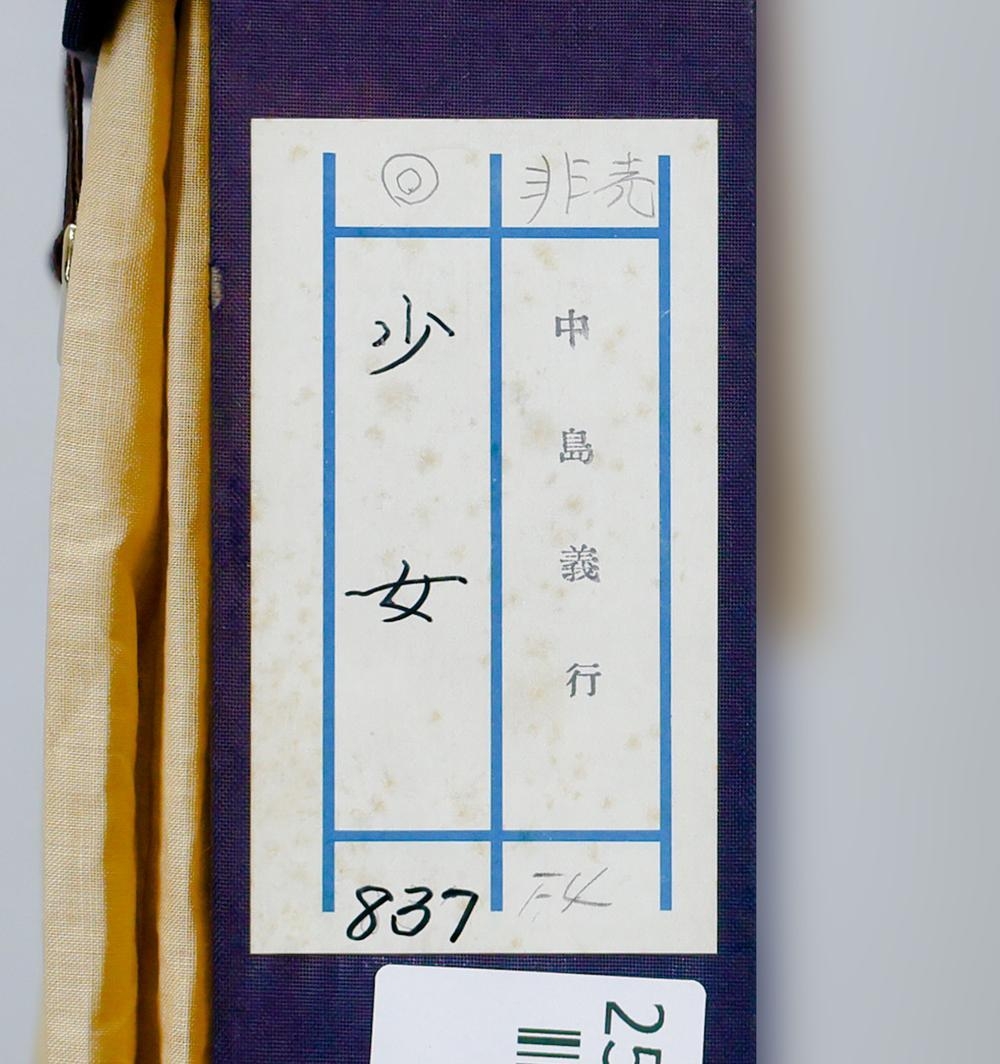 非売
中島義行
F4
◎
少女
837
25